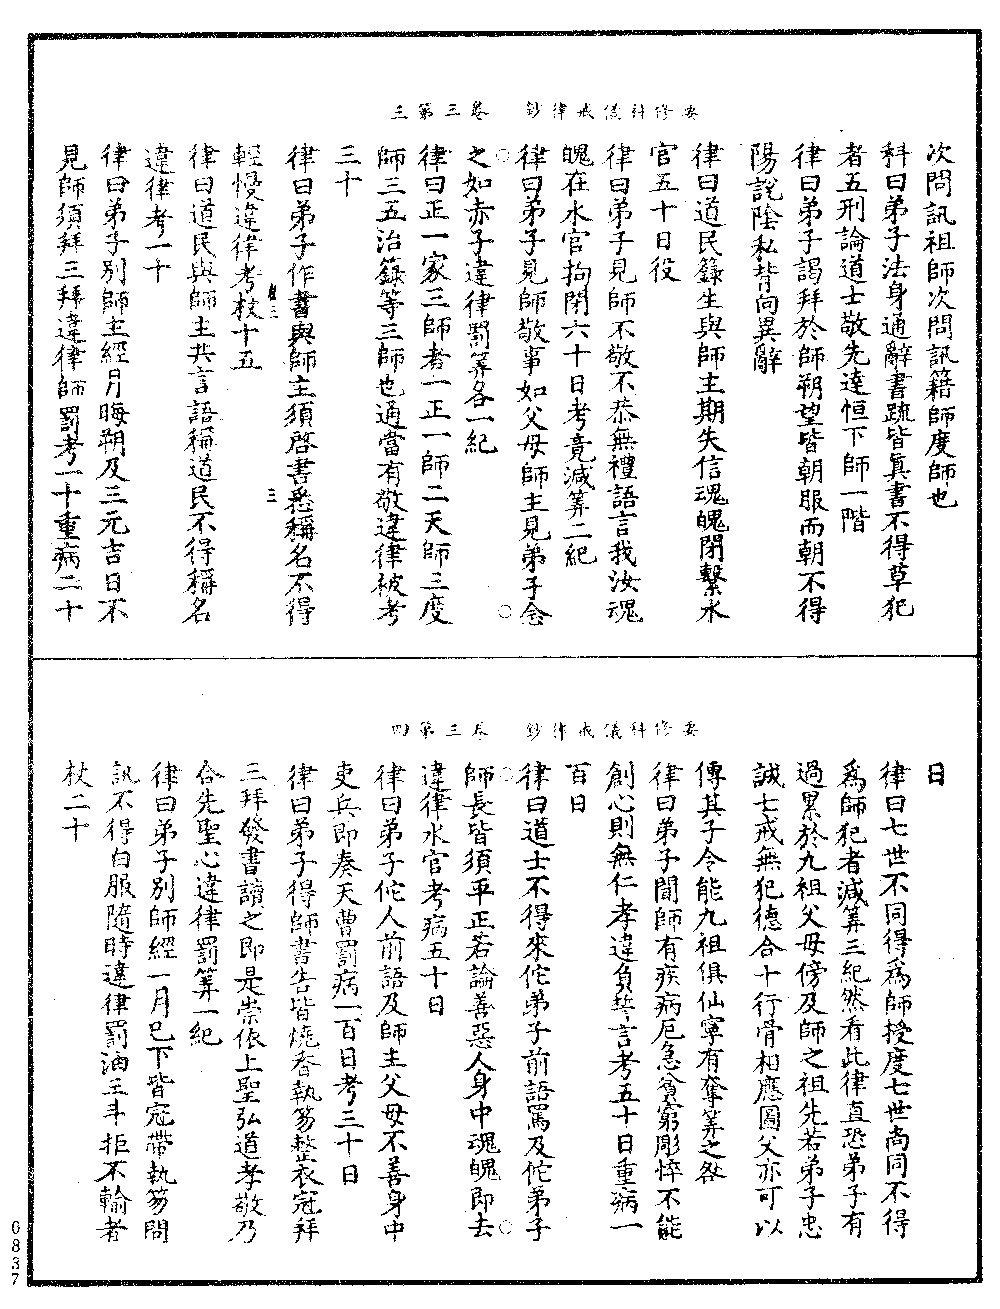 要修科儀戒律鈔　卷三第三
次問訊祖師次問訊籍師度師也
科曰弟子法身通辭書䟽皆真書不得草犯
者五刑論道士敬先達恒下師一階
律曰弟子謁拜於師朔望皆朝服而朝不得
陽說陰私背向異辭
律曰道民籙生與師主期失信魂魄閉繫水
官五十日役
律曰弟子見師不敬不恭無禮語言我汝魂
魄在水官拘閉六十日考竟減筭二紀
律曰弟子見師敬事如父母師主見弟子念
之如赤子違律罰筭各一紀
律曰正一家三師者一正一師二天師三度
師三五治籙等三師也通當有敬違律被考
三十
律曰弟子作書與師主須啓書悉稱名不得
三
輕慢違律考杖十五
律曰道民與師主共言語稱道民不得稱名
違律考一十
律曰弟子別師主經月晦朔及三元吉日不
見師須拜三拜違律師罰考一十重病二十
要修科儀戒律鈔　卷三第四
日
律曰七世不同得為師授度七世尚同不得
為師犯者減筭三紀然看此律直恐弟子有
過累於九祖父母傍及師之祖先若弟子忠
誠士戒無犯德合十行骨相應圖父亦可以
傳其子令能九祖俱仙寧有奪筭之咎
律曰弟子聞師有疾病厄急貧窮彫悴不能
創心則無仁孝違負誓言考五十日重病一
百日
律曰道士不得來佗弟子前語罵及佗弟子
師長皆須平正若論善惡人身中魂魄即去
違律水官考病五十日
律曰弟子佗人前語及師主父母不善身中
吏兵即奏天曹罰病一百日考三十日
律曰弟子得師書告皆燒香執笏整衣冠拜
三拜發書讀之即是崇依上聖弘道孝敬乃
合先聖心違律罰筭一紀
律曰弟子別師經一月已下皆冠帶執笏問
訊不得白服隨時違律罰油三斗拒不輸者
杖二十
0837